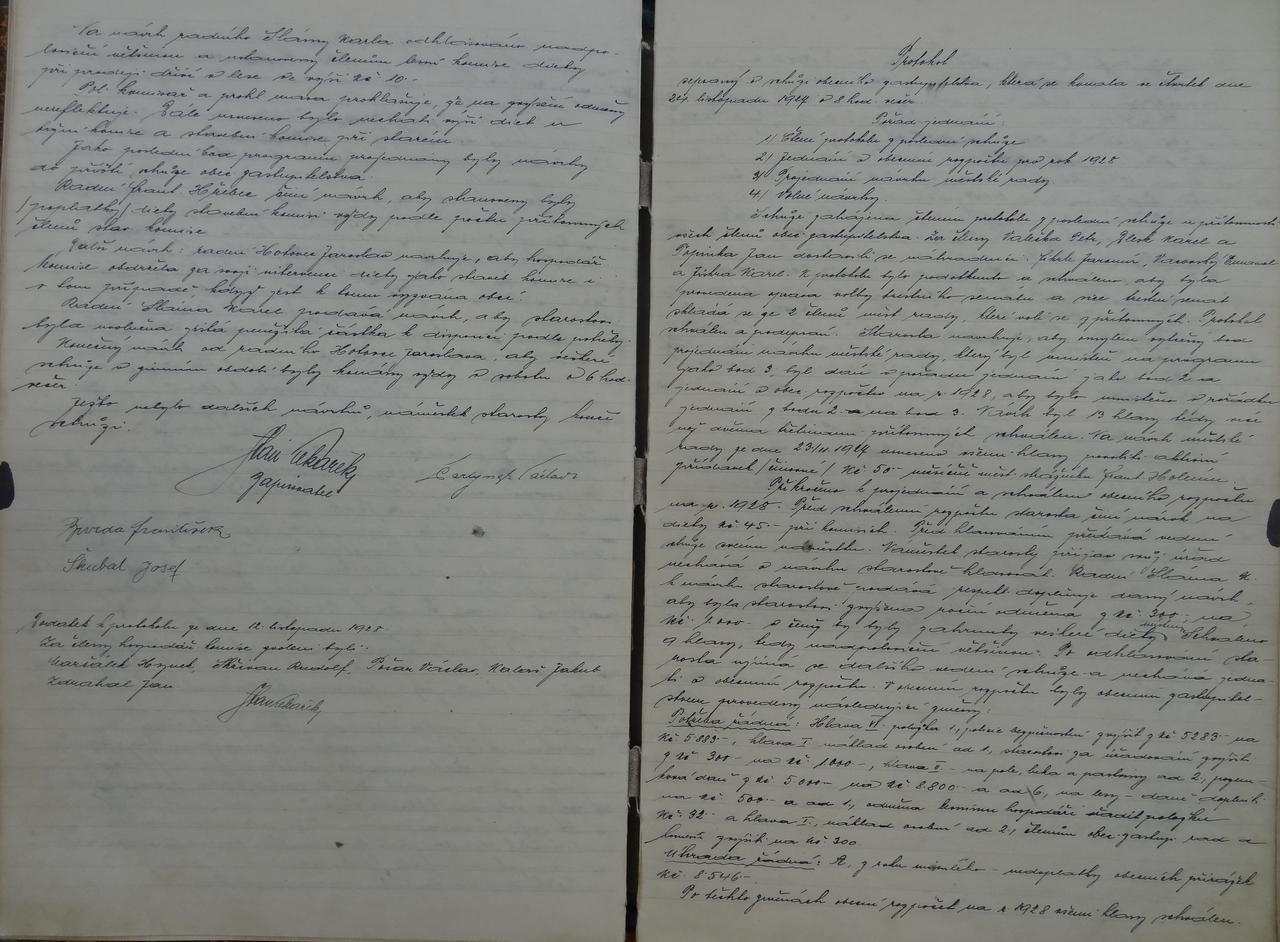 Na návrh radního Slámy Karla odhlasováno nadpo-
loviční většinou a ustanoveny členům lesní komise diety
při prodeji dříví z lesa ve výši Kč 10-
Pol. komisař a prohl. masa prohlašuje, že na zvýšení odměny
nereflektuje. Dále usneseno bylo nechati výši diet u
komise a stavební komise při starém.
Jako poslední bod programu projednány byly návrhy
do příští schůze obec. zastupitelstva.
Radní Frant. Hřebec činí návrh, aby stanoveny byly
/poplatky/ diety stavební komisi vždy podle počtu přítomných
členů stav. komise.
Další návrh: radní Hotovec Jaroslav navrhuje, aby hospodář.
komise obdržela za svoji intervenci diety jako staveb. komise i
v tom případě když jest k tomu vyzvána obcí.
Radní Sláma Karel podává návrh, aby starostovi
byla uvolněna jistá peněžitá částka k disposici podle potřeby.
Konečný návrh od radního Hotovce Jaroslava, aby veškeré
schůze v zimním období byly konány vždy v sobotu o 6 hod.
večer.
Ježto nebylo dalších návrhů, náměstek starosty končí
schůzi.
Zapisovatel
František
Škubal Josef
Dodatek k protokolu ze dne 12. listopadu 1927.
Za členy hospodář. komise zvoleni byli:
Maršálek Hynek, Rudolf, Václav, Jakub
Jan
Protokol
sepsaný o schůzi obecního zastupitelstva, která se konala ve čtvrtek dne
24. listopadu 1927 o 8 hod. večer.
Pořad jednání:
1) Čtení protokolu z poslední schůze
2) Jednání o obecním rozpočtu pro rok 1928
3) Projednání návrhu městské rady.
4) Volné návrhy.
Schůze zahájena čtením protokolu z poslední schůze u přítomnosti
všech členů obec. zastupitelstva. Za členy Valečka Petr, Karel a
Jan dostavili se náhradníci: Jaromír, Emanuel
a Jiskra Karel. K protokolu bylo podotknuto a schváleno, aby byla
provedena oprava volby trestního senátu a sice trestní senát
skládá se ze 2 členů měst. rady, které volí se z přítomných. Protokol
schválen a podepsán. Starosta navrhuje, aby omylem vytčený bod
projednání návrhu městské rady, který byl umístěn na programu
jako bod 3. byl dán v pořadu jednání jako bod 2. a
jednání o obec. rozpočtu na r. 1928, aby bylo umístěno v pořádku
jednání z bodu 2. a na bod 3. Návrh byl 13 hlasy tedy více
než dvěma třetinami přítomných schválen. Na návrh městské
rady ze dne 23/11 1927 usneseno všemi hlasy povoliti aktivní
přídavek /činovné/ Kč 50- měsíčně měst. strážníku Frant. Holému.
Přikročeno k projednání a schválení obecního rozpočtu
na r. 1928. Před schválením rozpočtu starosta činí nárok na
diety Kč 45- při komisích. Před hlasováním předává vedení
schůze svému náměstku. Náměstek starosty přijav svůj úřad
nechává o návrhu starostově hlasovat. Radní Sláma K.
k návrhu starostově podává respekt. doplňuje daný návrh,
aby byla starostovi zvýšena roční odměna z Kč 300- na
Kč 1.000- v čemž by byly zahrnuty veškeré diety. Schváleno
9 hlasy, tedy nadpoloviční většinou. Po odhlasování sta-
rosta ujímá se dalšího vedení schůze a nechává jedna-
ti o obecním rozpočtu. V obecním rozpočtu byly obecním zastupitel-
stvem provedeny následující změny:
Potřeba řádná: Hlava VI. položka 1, policie bezpečnostní zvýšit z Kč 5283- na
Kč 5883-, hlava I. náklad osobní ad 1, starostovi za úřadování zvýšiti
z Kč 300- na Kč 1000-, hlava II. - na pole, luka a pastviny ad 2, pozem-
ková daň z Kč 5.000- na Kč 8.800- a ad 6, na lesy - daně doplniti
na Kč 500- a ad 1, odměna lesnímu hospodáři vřadit položku
Kč 32- a hlava I., náklad osobní ad 2, členům obec. zastup. rad a
komisí zvýšiti na Kč 300
Úhrada řádná: A, z roku minulého - nedoplatky obecních přirážek
Kč 8.546-
Po těchto změnách obecní rozpočet na r. 1928 všemi hlasy schválen.